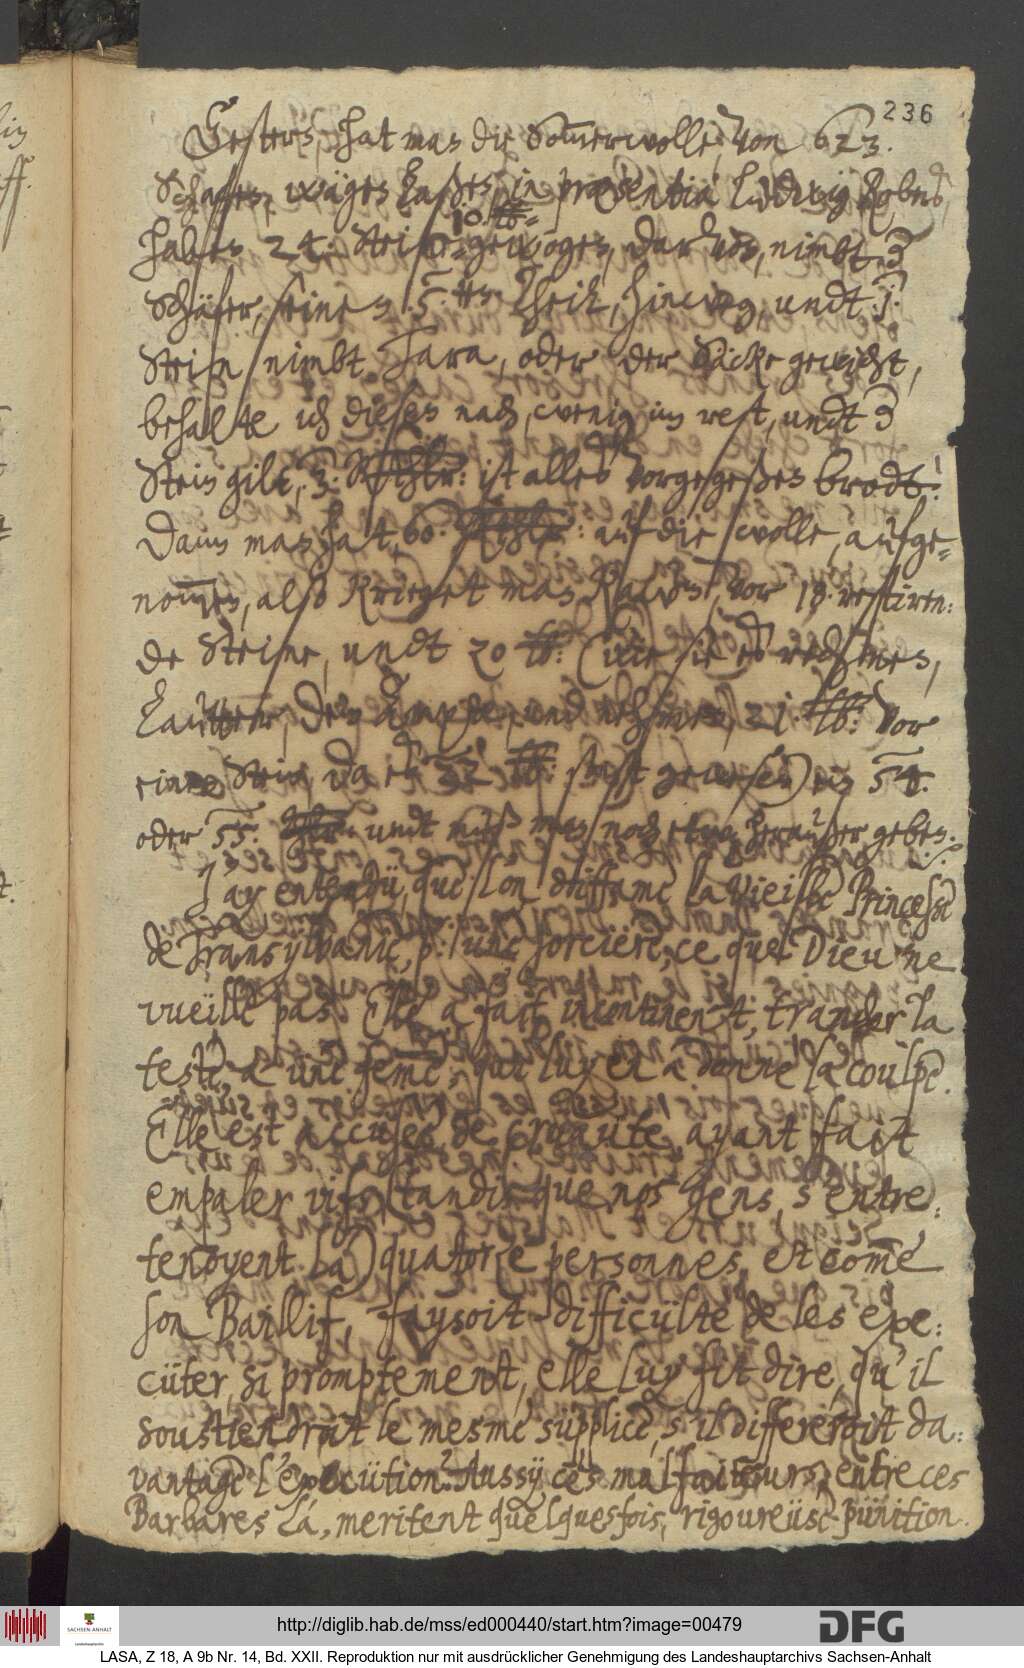 236
Gestern, hat man die Som̄erwolle, von 623.
Schafen, wägen laßen, in præsentia Ludwig Röbers,
haben 24. Stein, 10 ℔: gewogen, darvon, nimbt der
Schäfer, seinen 5.ten Theil, hinweg, undt 1.
Stein nimbt Tara, oder der Säcke gewicht,
behalte ich dieses nach, wenig im rest, undt der
Stein gilt, 3 Thlr: ist alles vorgegeßen brodt!
Dann man hat, 60. Thlr: auf die wolle, aufge-
nom̄en, also krieget man kaum, vor 18. restiren:
de Steine, undt 20 ℔: (wie sie es rechnen,
lautter, und nehmen 21. ℔: vor
einen Stein, da es 22 ℔: sonst gewesen) ein 54.
oder 55. Thlr: undt muß man noch etwas heraußer geben.
J'ay entendü, que l'on diffame la Vieille Princesse
de Transÿlvanie, p: une sorciere, ce que Dieu ne
vueille pas. Elle a fait incontinent, trancher la
teste, a üne fem̄e, qui luy en a donnè la coulpe.
Elle est accusèe, de cruautè, ayant fait
empaler vifs, (tandis que nos gens, s'entre:
tenoyent là) quatorze personnes, et com̄e
son Baillif, faysoit difficültè de les exe:
cüter, si promptement, elle luy fit dire, qu'il
soustiendroit le mesme süpplice, s'il differeroit da:
vantage l'execütion. Aussÿ ces malfaiteurs, entre ces
Barbares là, meritent quelquesfois, rigoureüse pünition.
http://diglib.hab.de/mss/ed000440/start.htm?image=00479
SACHSEN-ANHALT
DFG
LASA, Z 18, A 9b Nr. 14, Bd. XXII. Reproduktion nur mit ausdrücklicher Genehmigung des Landeshauptarchivs Sachsen-Anhalt